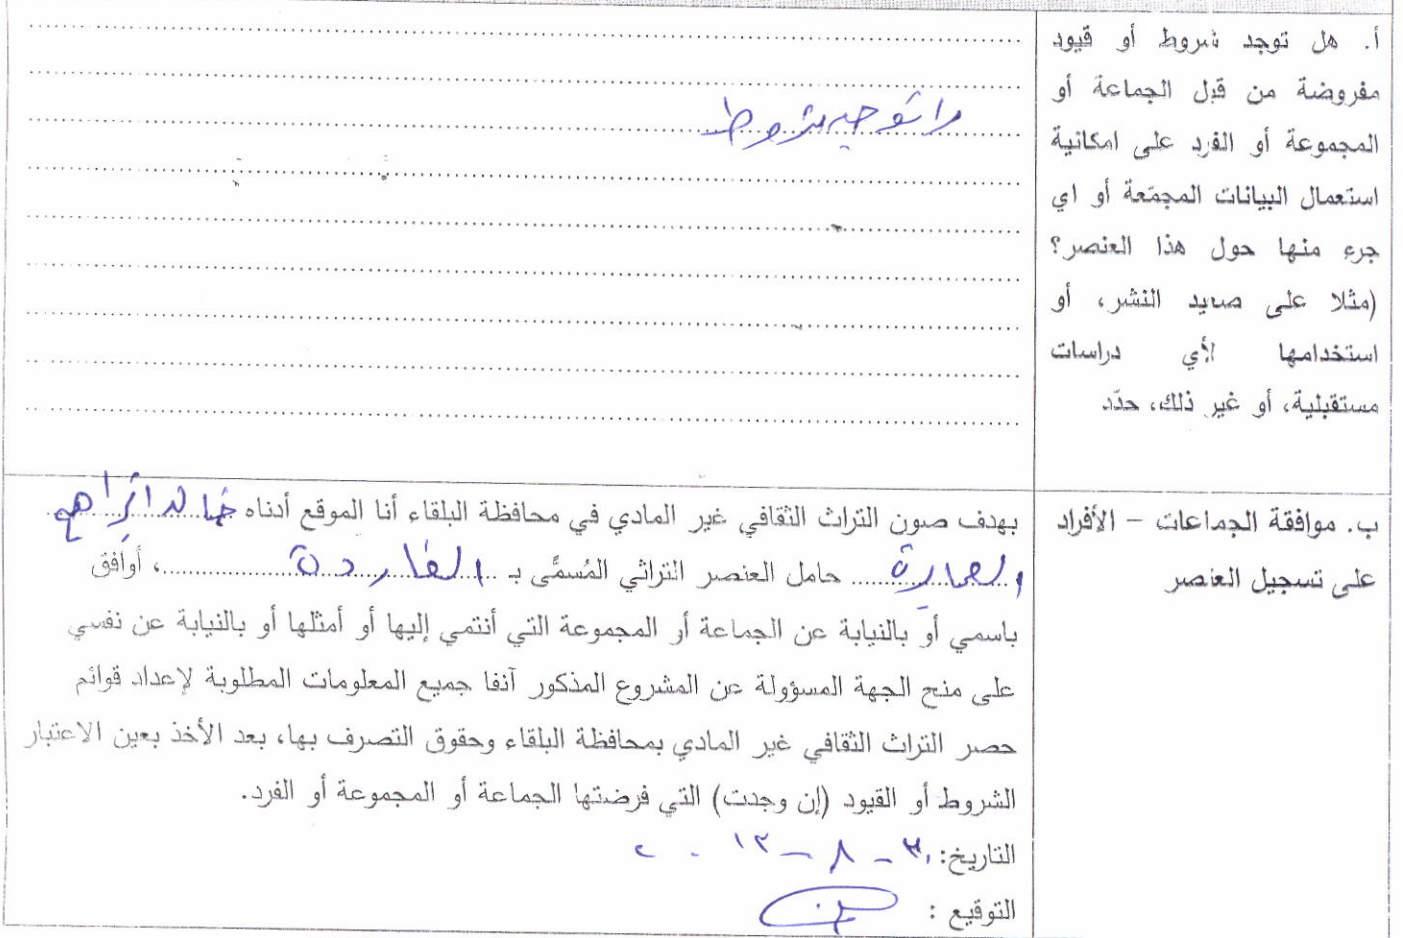 أ. هل توجد شروط أو قيود
مفروضة من قبل الجماعة أو
المجموعة أو الفرد على امكانية
استعمال البيانات المجمّعة أو اي
جزء منها حول هذا العنصر؟
(مثلا على صعيد النشر، أو
استخدامها لأي دراسات
مستقبلية، أو غير ذلك، حدّد
لا توجد شروط
ب. موافقة الجماعات - الأفراد
على تسجيل العنصر
بهدف صون التراث الثقافي غير المادي في محافظة البلقاء أنا الموقع أدناه خالد ابراهيم
حامل العنصر التراثي المُسمَّى بـ الفاردة، أوافق
باسمي أو بالنيابة عن الجماعة أو المجموعة التي أنتمي إليها أو أمثلها أو بالنيابة عن نفسي
على منح الجهة المسؤولة عن المشروع المذكور آنفا جميع المعلومات المطلوبة لإعداد قوائم
حصر التراث الثقافي غير المادي بمحافظة البلقاء وحقوق التصرف بها، بعد الأخذ بعين الاعتبار
الشروط أو القيود (إن وجدت) التي فرضتها الجماعة أو المجموعة أو الفرد.
التاريخ: ٣٠ - ٨ - ٢٠١٣
التوقيع :